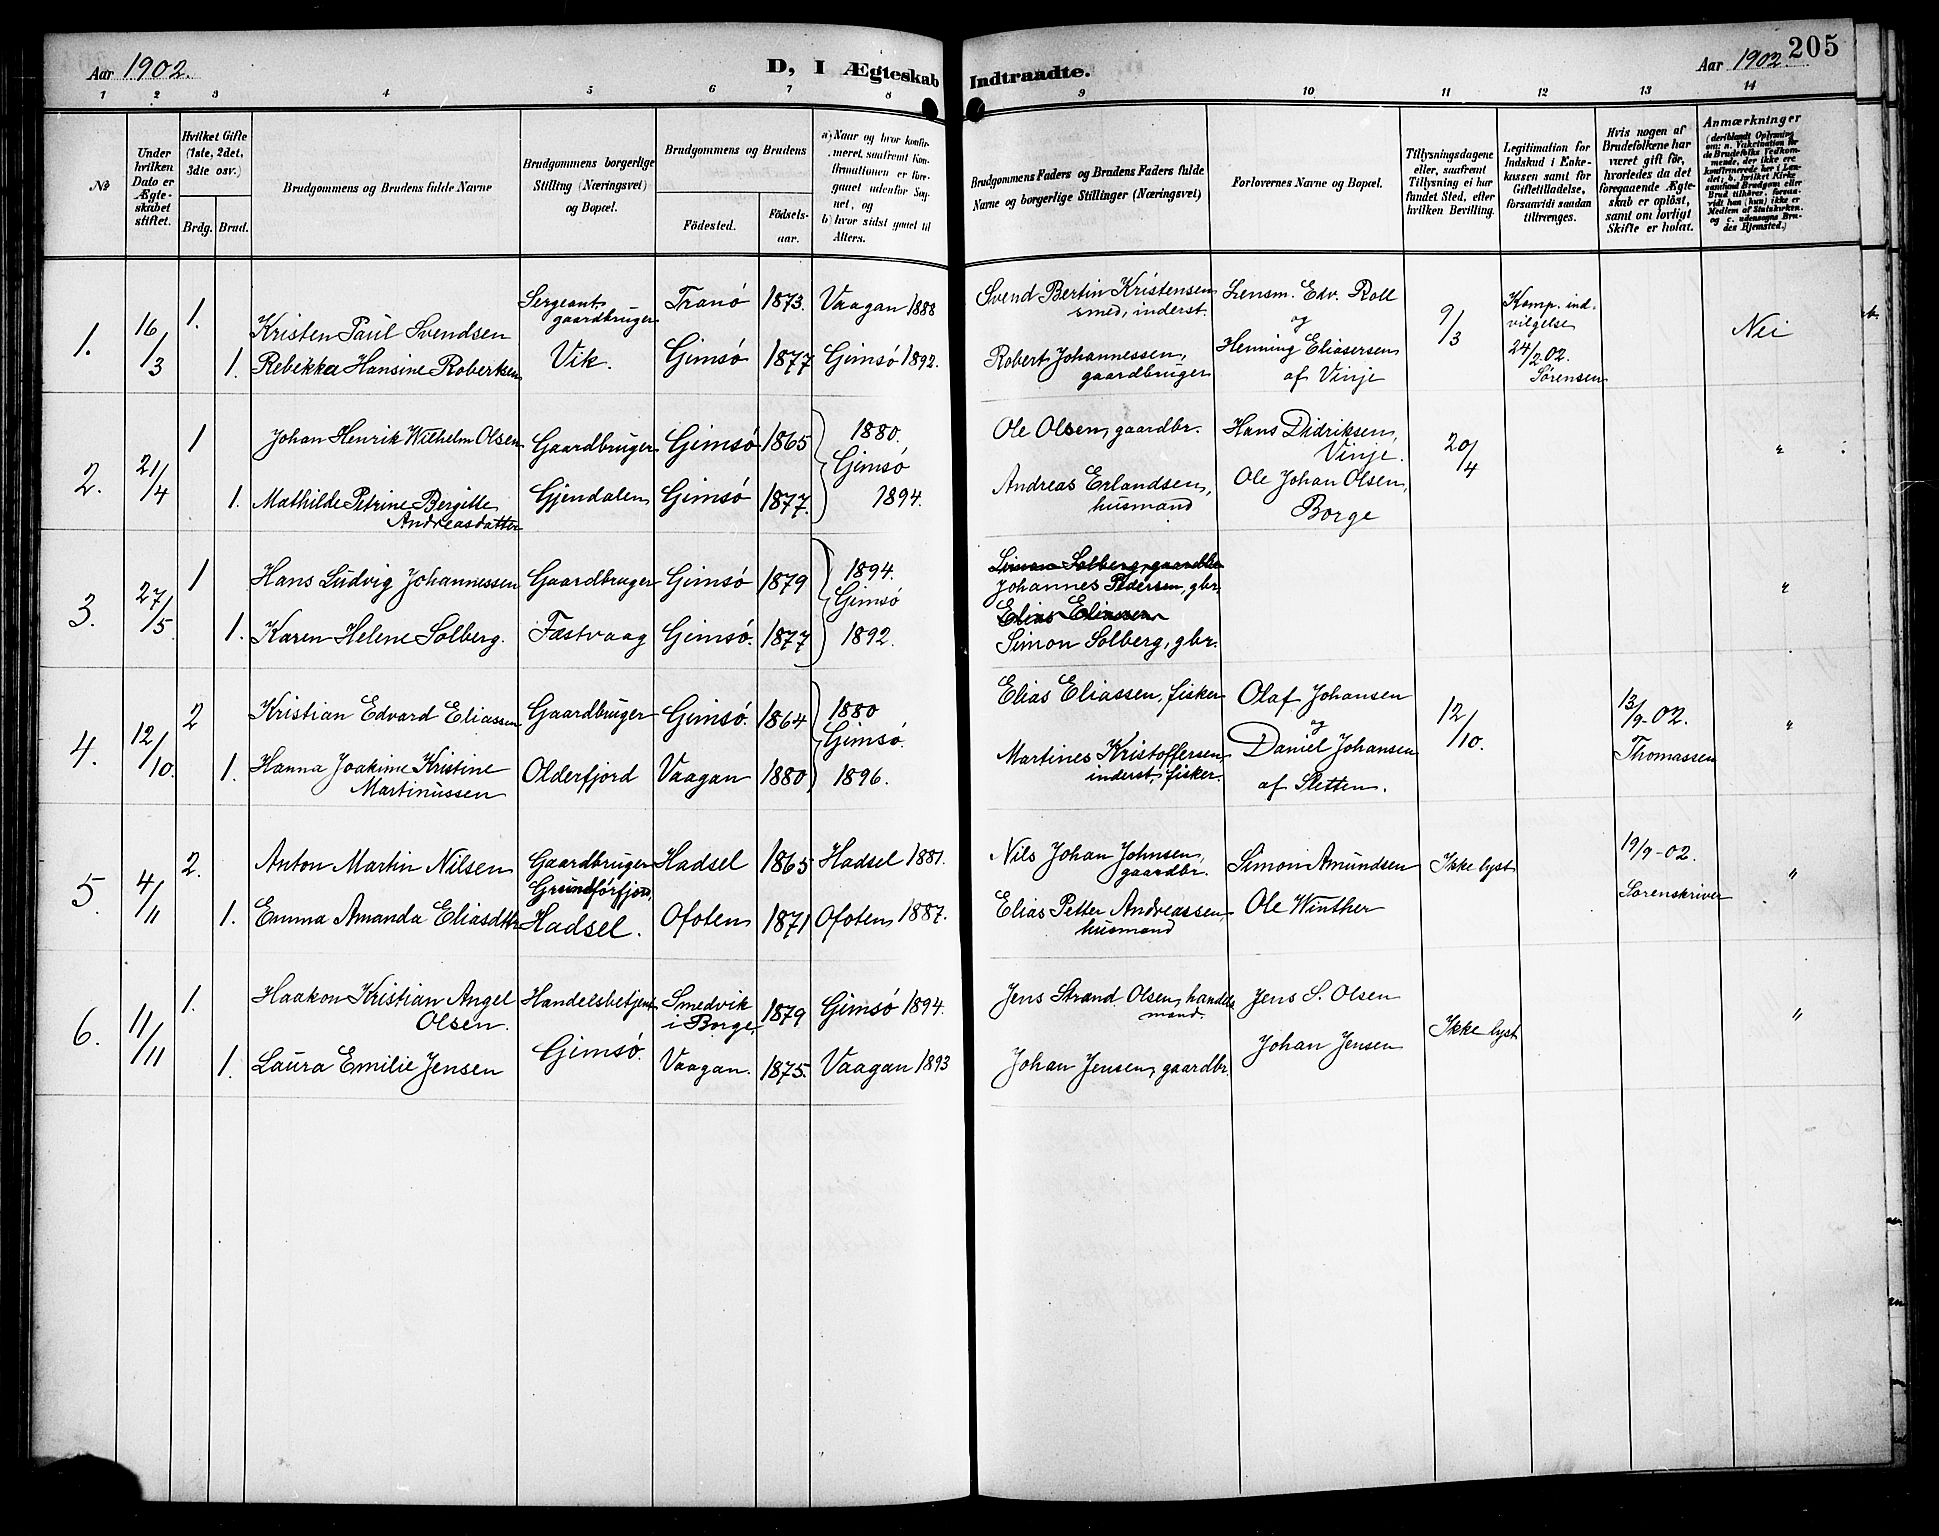 Aar 1902.
D, I Ægteskab Indtraadte.
Aar 1902.
205
1 2 3 4 5 6 7 8 9 10 11 12 13 14
No
Under hvilken Dato er Ægteskabet stiftet.
Hvilket Gifte (1ste, 2det, 3die osv.)
Brdg. Brud.
Brudgommens og Brudens fulde Navne
Brudgommens borgerlige Stilling (Næringsvei) og Bopæl.
Brudgommens og Brudens
Födested.
Födselsaar.
a) Naar og hvor konfirmeret, saafremt Konfirmationen er foregaaet udenfor Sognet, og
b) hvor sidst gaaet til Alters.
Brudgommens Faders og Brudens Faders fulde Navne og borgerlige Stillinger (Næringsvei)
Forlovernes Navne og Bopæl.
Tillysningsdagene eller, saafremt Tillysning ei har fundet Sted, efter hvilken Bevilling.
Legitimation for Indskud i Enkekassen samt for Giftetilladelse, forsaavidt saadan tiltrænges.
Hvis nogen af Brudefolkene har været gift för, hvorledes da det foregaaende Ægteskab er oplöst, samt om lovligt Skifte er holdt.
Anmærkninger
1. 16/3 1. Kristen Paul Svendsen Sergeant, gaardbruger Tranö 1873. Vaagan 1888 Svend Bertin Kristensen smed, inderst. Lensm. Edv. Roll og 9/3 Komp. indvilgelse Nei
1. Rebekka Hansine Robertsen Vik. Gimsö 1877 Gimsö 1892. Robert Johannessen, gaardbruger Henning Eliasersen af Vinje 24/2 02. Sörensen
2. 21/4 1 Johan Henrik Wilhelm Olsen Gaardbruger Gimsö 1865 1880. Gimsö Ole Olsen, gaardbr. Hans Didriksen, Vinje. 20/4 "
1. Mathilde Petrine Bergitte Andreasdatter Gjendalen Gimsö 1877. 1894. Andreas Erlandsen, husmand Ole Johan Olsen, Borge
3. 27/5 1 Hans Ludvig Johannessen Gaardbruger Gimsö 1879 1894. Gimsö Simon Solberg, gaardbr Johannes Pedersen, gbr. "
1. Karen Helene Solberg. Fæstvaag Gimsö. 1877 1892. Elias Eliassen Simon Solberg, gbr.
4. 12/10. 2 Kristian Edvard Eliassen Gaardbruger Gimsö. 1864 1880 Gimsö. Elias Eliassen, fisker Olaf Johansen og 12/10. 13/9-02. "
1. Hanna Joakime Kristine Martinussen Olderfjord Vaagan 1880 1896. Martines Kristoffersen, inderst, fisker. Daniel Johansen af Sletten. Thomassen
5. 4/11 2. Anton Martin Nilsen Gaardbruger Grundförfjord, Hadsel 1865 Hadsel 1881. Nils Johan Johnsen, gaardbr. Simon Amundsen Ikke lyst 19/9-02. "
1. Emma Amanda Eliasdttr Hadsel. Ofoten 1871 Ofoten 1887. Elias Petter Andreassen, husmand Ole Winther Sorenskriver
6. 11/11 1. Haakon Kristian Angel Olsen. Handelsbetjent Smedvik i Borge, 1879 Gimsö 1894. Jens Strand Olsen, handelsmand. Jens S. Olsen Ikke lyst "
1. Laura Emilie Jensen Gimsö. Vaagan. 1875. Vaagan 1893 Johan Jensen, gaardbr. Johan Jensen